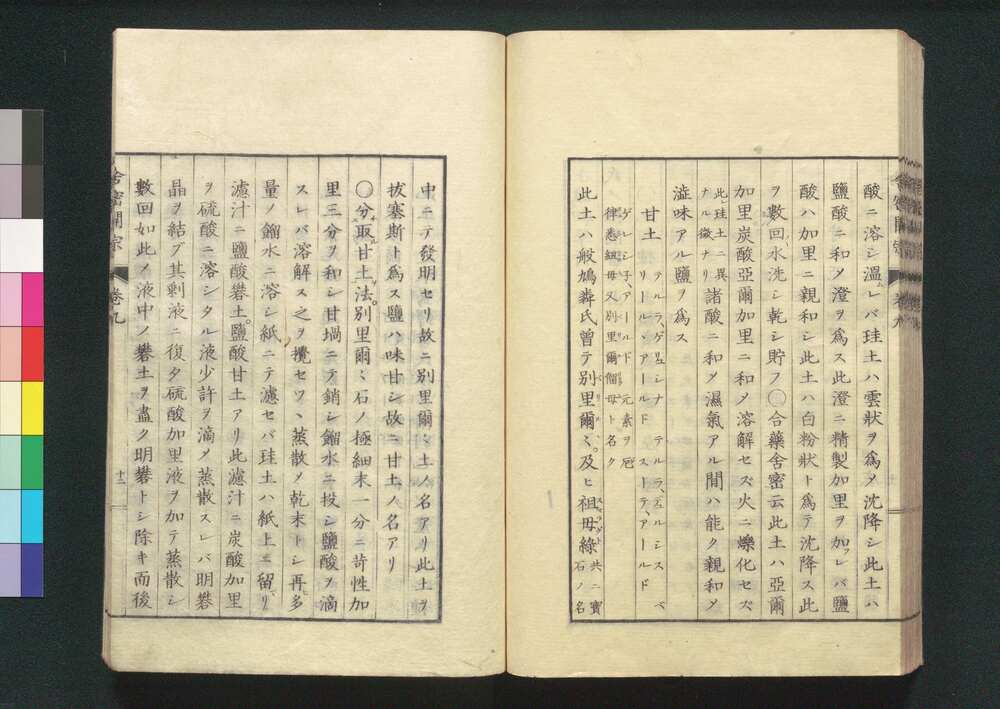 酸ニ溶シ溫レバ珪土ハ雲狀ヲ爲メ沈降シ此土ハ
鹽酸ニ和メ澄ヲ爲ス此澄ニ精製加里ヲ加フレバ鹽
酸ハ加里ニ親和シ此土ハ白粉狀ト爲テ沈降ス此
ヲ數回水洗シ乾シ貯フ〇合藥舍密云此土ハ亞爾
加里炭酸亞爾加里ニ和メ溶解セズ火ニ爍化セズ
此珪土ニ異ナル徵ナリ諸酸ニ和メ濕氣アル間ハ能ク親和メ
澁味アル鹽ヲ爲ス
甘土
此土ハ般鳩犇氏曾テ別里爾ミ及ヒ祖母綠共ニ寶石ノ名
中ニテ發明セリ故ニ別里爾ミ土ノ名アリ此土ヲ
拔塞斯ト爲ス鹽ハ味甘シ故ニ甘土ノ名アリ
〇分取甘土法別里爾ミ石ノ極細末一分ニ苛性加
里三分ヲ和シ甘堝ニテ銷シ餾水ニ投シ鹽酸ヲ滴
スレバ溶解ス之ヲ攪セツヽ蒸散メ乾末トシ再多
量ノ餾水ニ溶シ紙ニテ濾セバ珪土ハ紙上ニ留リ
濾汁ニ鹽酸礬土鹽酸甘土アリ此濾汁ニ炭酸加里
ヲ硫酸ニ溶シタル液少許ヲ滴メ蒸散スレバ明礬
晶ヲ結ブ其剩液ニ復タ硫酸加里液ヲ加テ蒸散シ
數回如此メ液中ノ礬土ヲ盡ク明礬トシ除キ而後
舍密開宗
卷九
十二